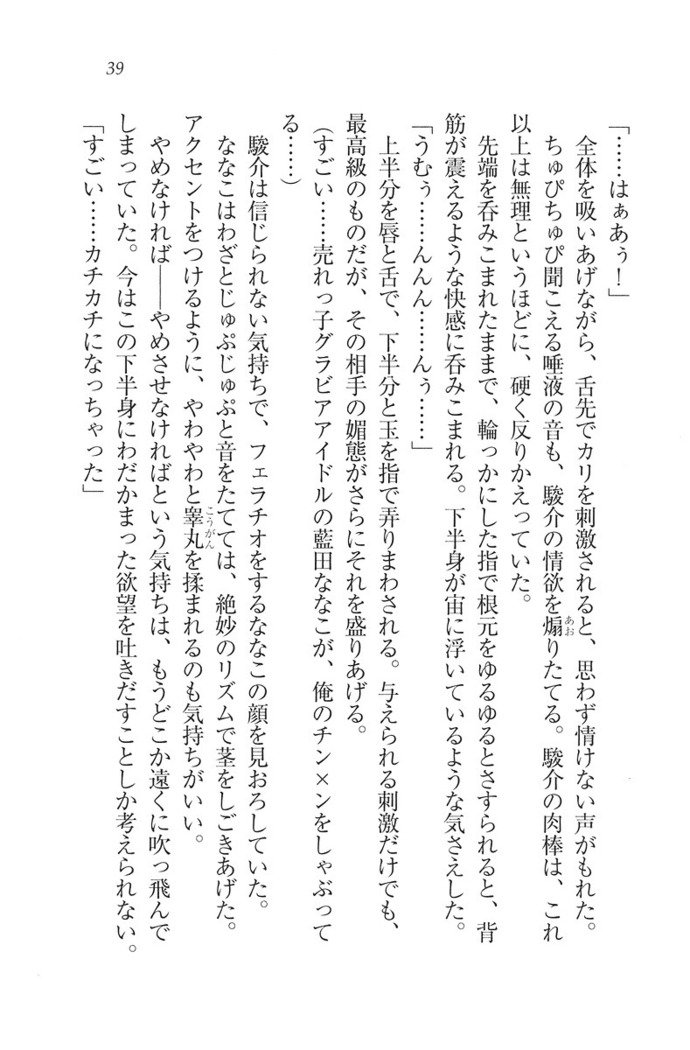 39
「……はぁあぅ！」
全体を吸いあげながら、舌先でカリを刺激されると、思わず情けない声がもれた。
ちゅぴちゅぴ聞こえる唾液の音も、駿介の情欲を煽りたてる。駿介の肉棒は、これ
以上は無理というほどに、硬く反りかえっていた。
先端を呑みこまれたままで、輪っかにした指で根元をゆるゆるとさすられると、背
筋が震えるような快感に呑みこまれる。下半身が宙に浮いているような気さえした。
「うむぅ……んんん……んぅ……」
上半分を唇と舌で、下半分と玉を指で弄りまわされる。与えられる刺激だけでも、
最高級のものだが、その相手の媚態がさらにそれを盛りあげる。
(すごい……売れっ子グラビアアイドルの藍田ななこが、俺のチン×ンをしゃぶって
る……)
駿介は信じられない気持ちで、フェラチオをするななこの顔を見おろしていた。
ななこはわざとじゅぷじゅぷと音をたてては、絶妙のリズムで茎をしごきあげた。
アクセントをつけるように、やわやわと睾丸を揉まれるのも気持ちがいい。
こうがん
やめなければ――やめさせなければという気持ちは、もうどこか遠くに吹っ飛んで
しまっていた。今はこの下半身にわだかまった欲望を吐きだすことしか考えられない。
「すごい……カチカチになっちゃった」
あお